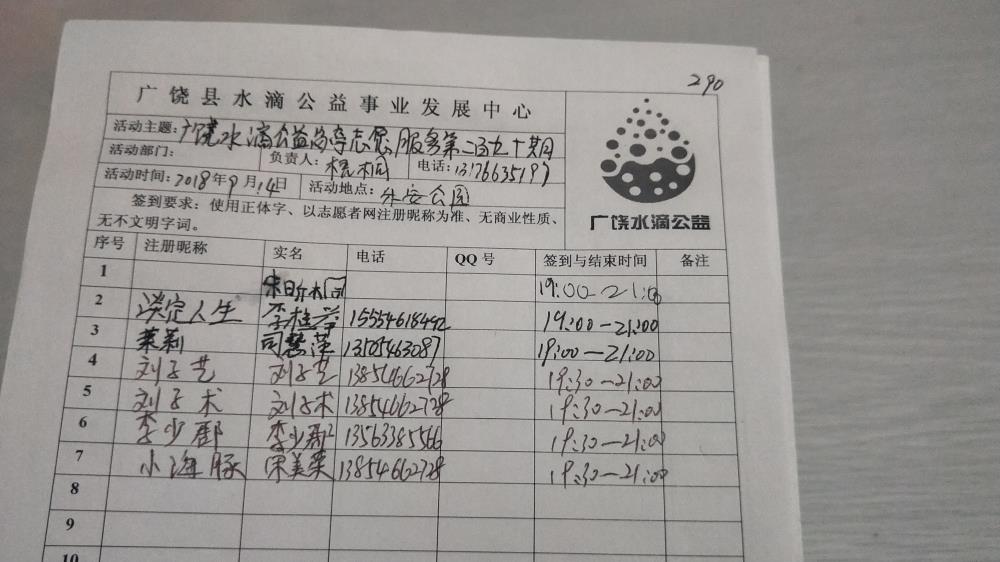 290
广饶县水滴公益事业发展中心
活动主题:广饶水滴公益岗亭志愿服务第二百九十期
活动部门: 负责人:梧桐 电话:13176635197
活动时间:2018年9月14日 活动地点:乐安公园
签到要求:使用正体字、以志愿者网注册昵称为准、无商业性质、
无不文明字词。
广饶水滴公益
序号 注册昵称 实名 电话 QQ号 签到与结束时间 备注
1 19:00-21:00
2 淡定人生 李桂芳 15554618492 19:00-21:00
3 茉莉 司慧萍 13505463087 19:00-21:00
4 刘子艺 刘子艺 13854662728 19:30-21:00
5 刘子术 刘子术 13854662728 19:30-21:00
6 李少郡 李少郡 13563385566 19:30-21:00
7 小海豚 宋美荣 13854662728 19:30-21:00
8
9
10